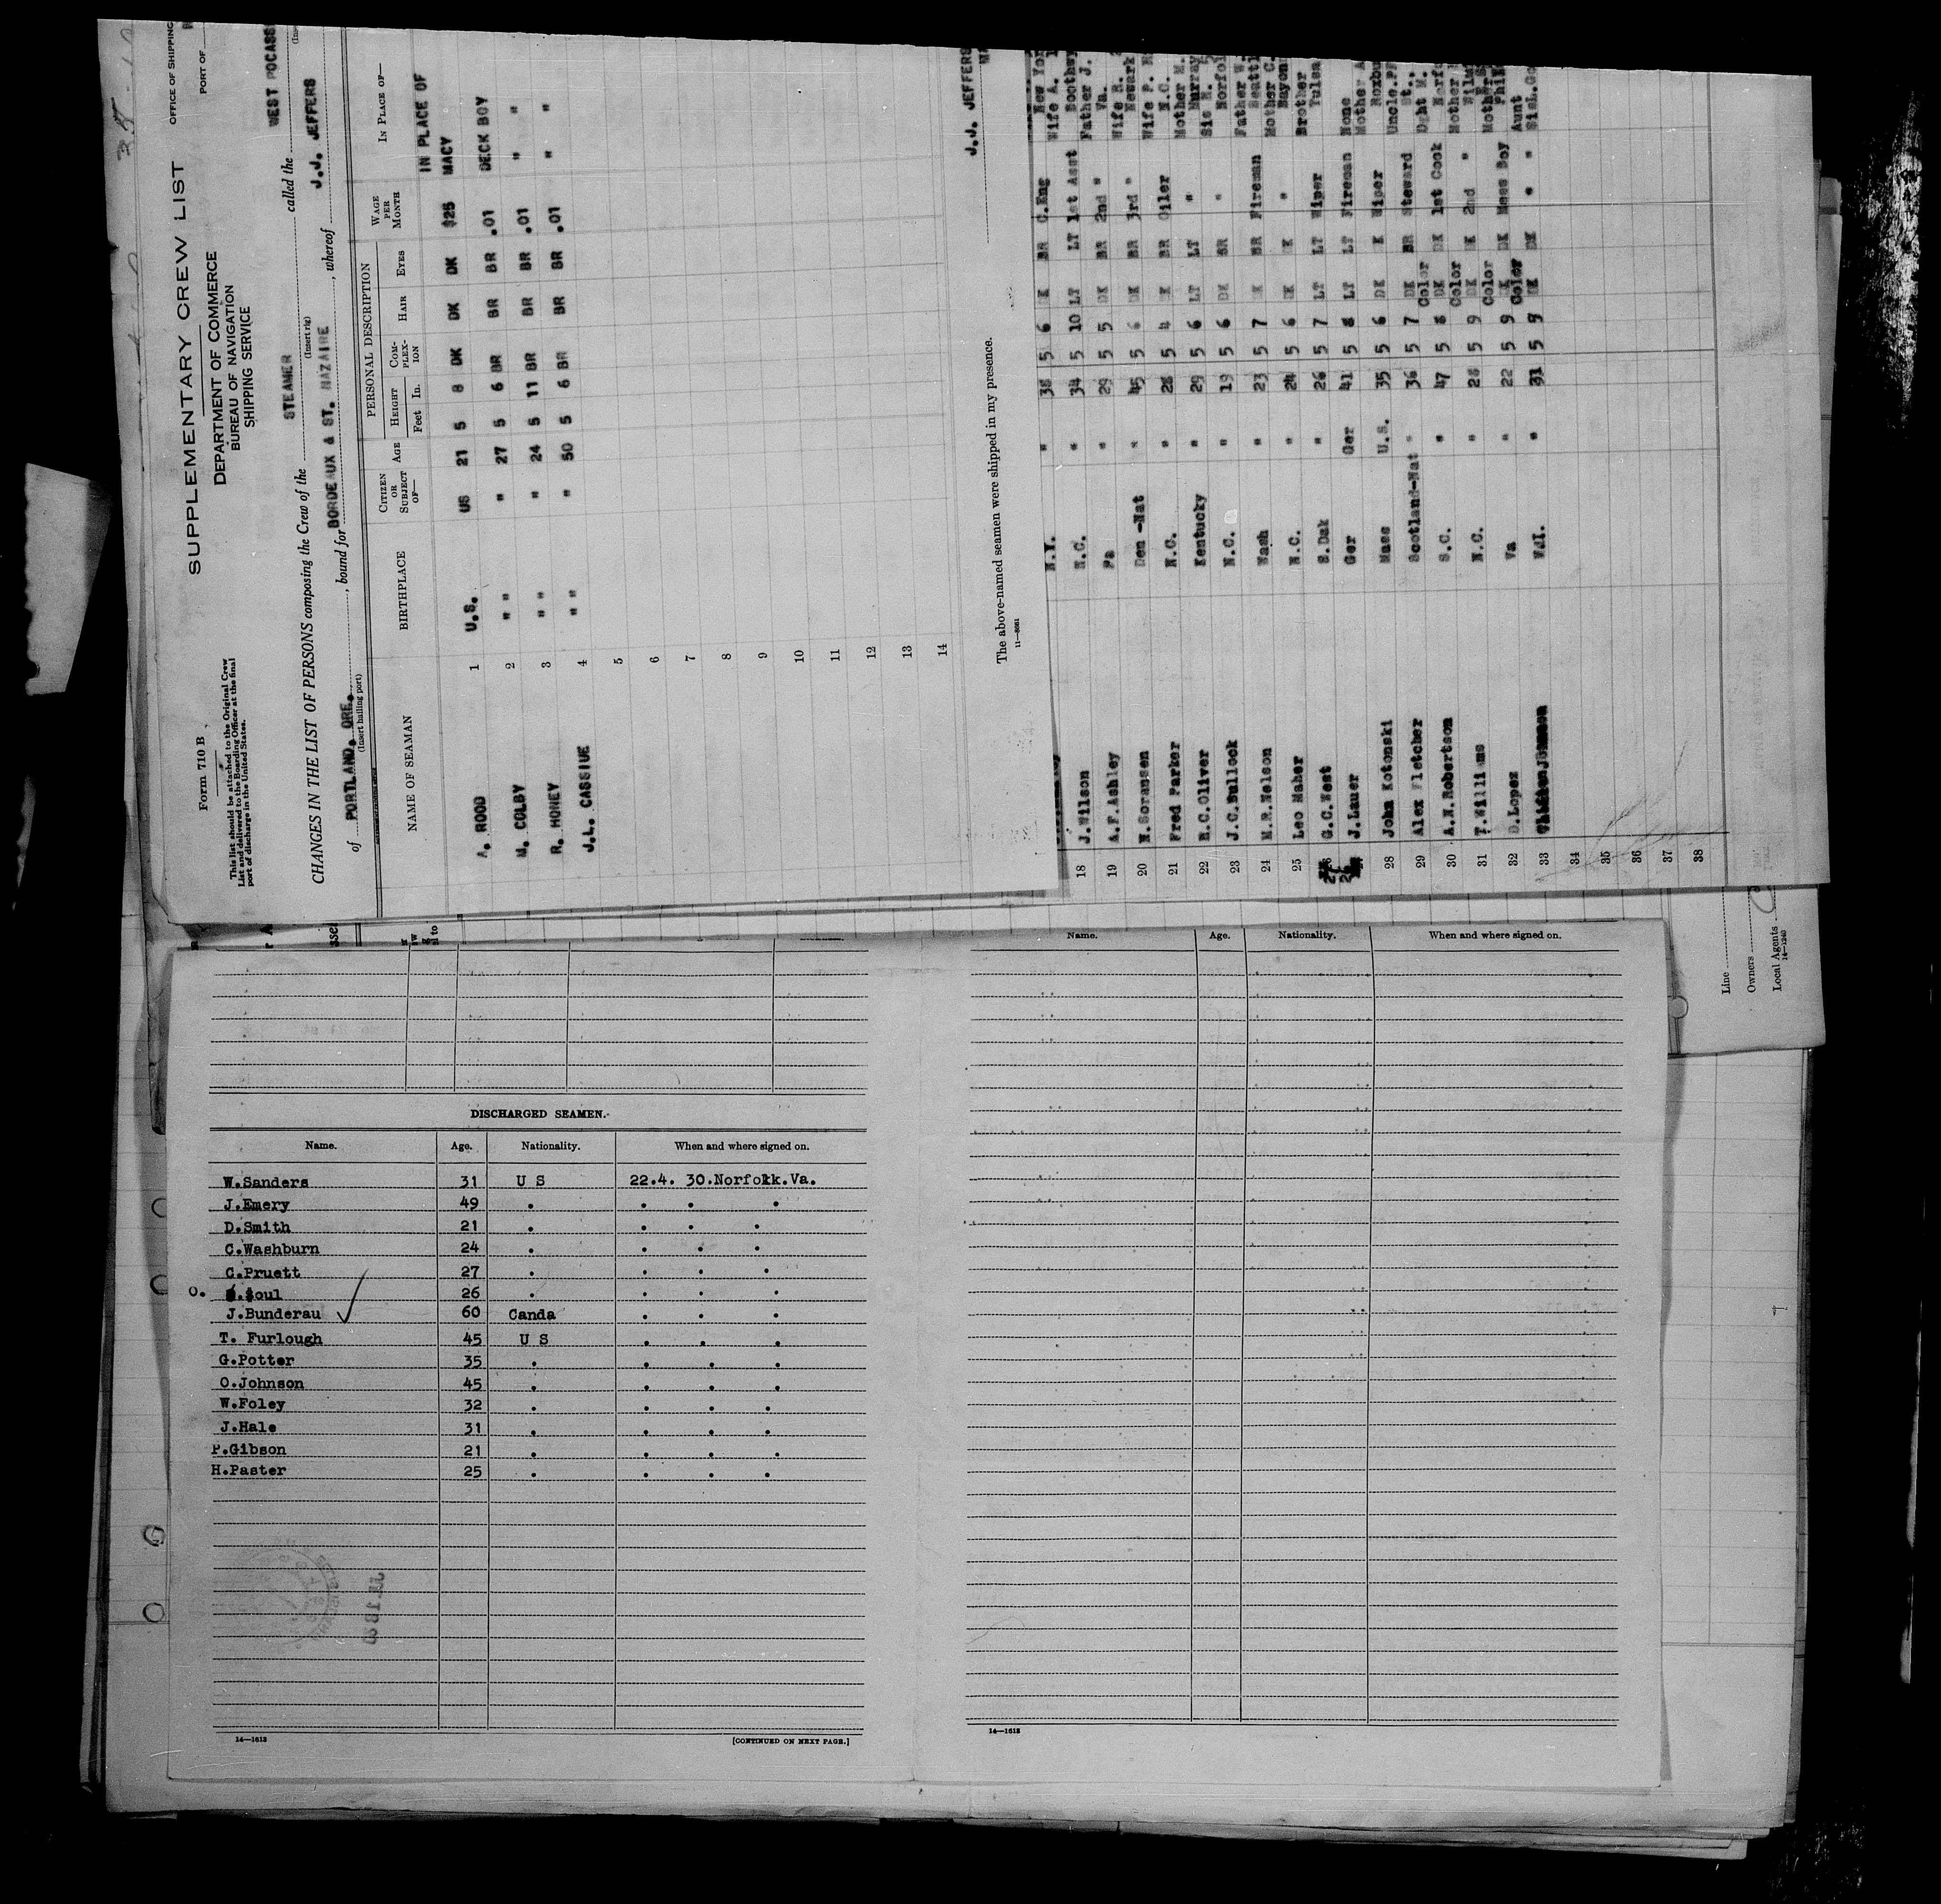 SUPPLEMENTARY CREW LIST
OFFICE OF SHIPPING
PORT OF
Form 710 B
DEPARTMENT OF COMMERCE
BUREAU OF NAVIGATION
SHIPPING SERVICE
This list should be attached to the Original Crew
List and delivered to the Boarding Officer at the final
port of discharge in the United States.
CHANGES IN THE LIST OF PERSONS composing the Crew of the STEAMER called the WEST POCASS
(Insert rig)
of PORTLAND, ORE., bound for BORDEAUX & ST. NAZAIRE, whereof J.J. JEFFERS
(Insert hailing port)
NAME OF SEAMAN BIRTHPLACE CITIZEN OR SUBJECT OF— AGE PERSONAL DESCRIPTION HEIGHT Feet In. COM-PLEX-ION HAIR EYES WAGE PER MONTH IN PLACE OF—
IN PLACE OF
A. ROOD 1 U.S. US 21 5 8 DK DK DK $25 MACY
M. COLBY 2 " " " 27 5 6 BR BR BR .01 DECK BOY
R. HONEY 3 " " " 24 5 11 BR BR BR .01 "
J.L. CASSIUE 4 " " " 50 5 6 BR BR BR .01 "
5
6
7
8
9
10
11
12
13
14
J.J. JEFFERS
The above-named seamen were shipped in my presence.
11—8081
N.Y. " 38 5 6 DK BR C.Eng Wife A.
18 J.Wilson N.C. " 34 5 10 LT LT 1st Asst Father J.
19 A.F.Ashley Pa " 29 5 5 DK BR 2nd " Wife R.
20 N.Soransen Den -Nat " 45 5 6 DK BR 3rd " Wife P.
21 Fred Parker N.C. " 28 5 4 DK BR Oiler Mother M.
22 R.C.Oliver Kentucky " 29 5 6 LT LT " Sis
23 J.C.Bullock N.C. " 19 5 6 DK BR " Father W.
24 M.R.Nelson Wash " 23 5 7 DK BR Fireman Mother C.
25 Leo Maher N.C. " 24 5 6 DK DK " Brother
G.C.West S.Dak " 26 5 7 LT LT Wiper Tulsa
J.Lauer Ger Ger 41 5 8 LT LT Fireman None
28 John Kotonski Mass U.S. 35 5 6 DK K Wiper
29 Alex Fletcher Scotland-Nat " 36 5 7 DK BR Steward
30 A.N.Robertson S.C. " 47 5 8 Color DK DK 1st Cook
31 T.Williams N.C. " 28 5 9 Color DK DK 2nd "
32 D.Lopez Va " 22 5 9 Color DK DK Mess Boy Aunt
33 W.I. " 31 5 9 Color DK DK " "
34
35
36
37
38
Line
Owners
Local Agents
14—1240
DISCHARGED SEAMEN.
Name. Age. Nationality. When and where signed on.
W.Sanders 31 U S 22.4. 30.Norfolk.Va.
J.Emery 49 . . . .
D.Smith 21 . . . .
C.Washburn 24 . . . .
C.Pruett 27 . . . .
O. Soul 26 . . . .
J.Bunderau 60 Canda . . .
T. Furlough 45 U S . . .
G.Potter 35 . . . .
O.Johnson 45 . . . .
W.Foley 32 . . . .
J.Hale 31 . . . .
P.Gibson 21 . . . .
H.Paster 25 . . . .
14—1613
[CONTINUED ON NEXT PAGE.]
Name. Age. Nationality. When and where signed on.
14—1613